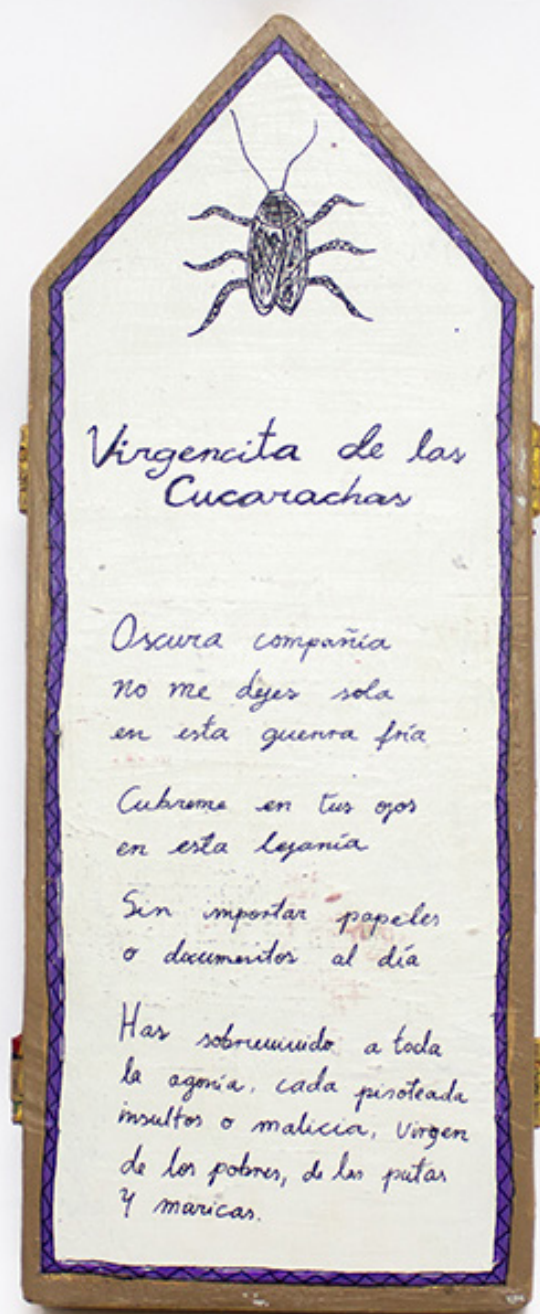 Virgencita de las
Cucarachas
Oscura compañía
no me dejes sola
en esta guerra fría
Cubreme en tus ojos
en esta lejanía
Sin importar papeles
o documentos al día
Has sobrevivido a toda
la agonía, cada pisoteada
insultos o malicia, Virgen
de los pobres, de las putas
Y maricas.